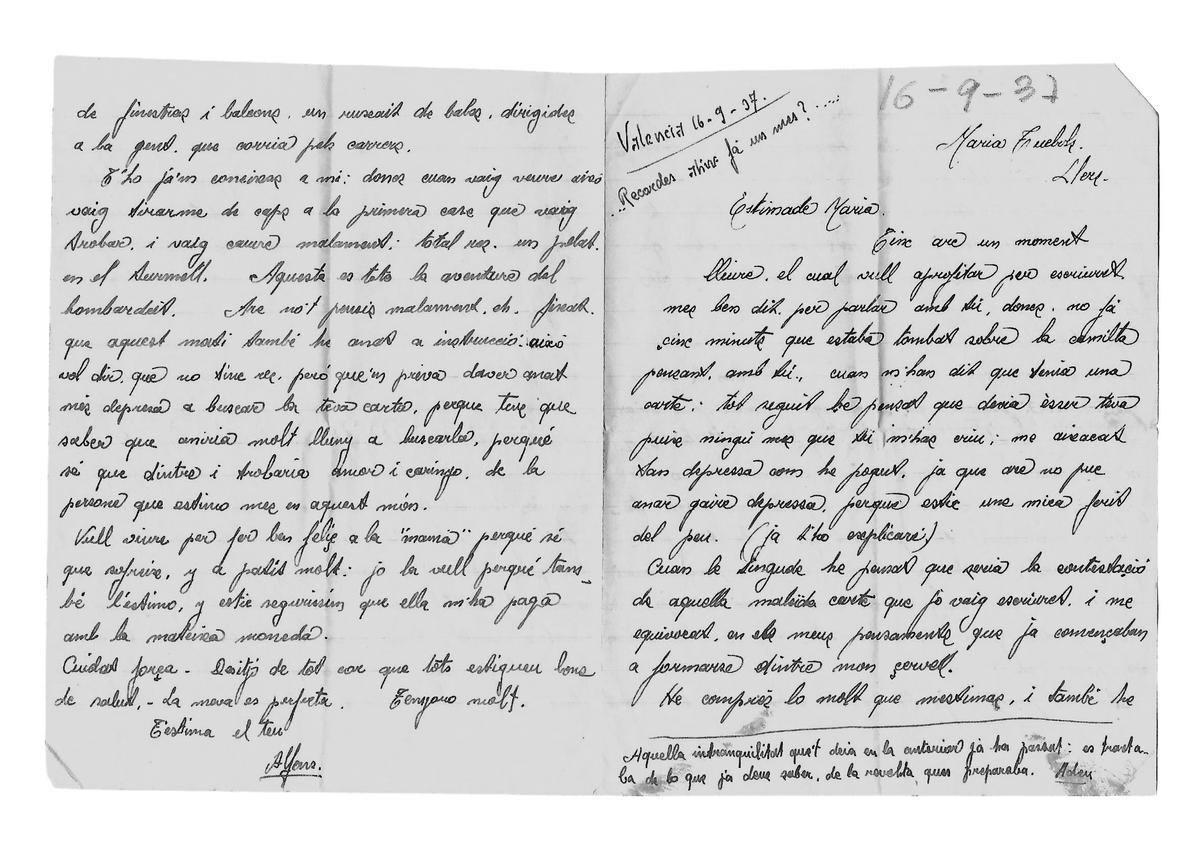 16-9-37
Valencia 16-9-37.
...Recordes avui fá un mes?.....
Maria
Llers.
Estimada Maria.
Tinc are un moment
lliure, el cual vull aprofitar per escriuret
mes ben dit, per parlar amb tú, doncs, no fá
cinc minuts que estaba tombat sobre la camilla
pensant, amb tú, cuan m'han dit que tenia una
carte; tot seguit he pensat que devia èsser teva
puix ningú mes que tú m'has eriu; me aixacat
tan depressa com he pogut, ja que are no puc
anar gaire depressa, perquè estic una mica ferit
del peu. (ja t'ho explicaré)
Cuan la tingude he pensat que seria la contestació
de aquella maleïda carte que jo vaig escriuret, i me
equivocat, en els meus pensaments que ja començaban
a formarse dintre mon cervell.
He comprés lo molt que mestimas, i també he
Aquella intranquilitat que't deia en la anterior já ha passat: es tracta-
ba de lo que ja deus saber, de la revolta ques preparaba. Adeu
de finestres i balcons, un ruxait de bales, dirigides
a la gent, que corria pels carrers.
Tú já'm coneixes a mi: doncs cuan vaig veure aixó
vaig tirarme de caps a la primera case que vaig
trobar, i vaig caure malament: total res, un pelat
en el turmell. Aquesta es tota la aventura del
bombardeit. Are no't pensis malament, eh, fixat,
que aquest matí també he anat a instrucció: aixó
vol dir, que no tinc res, peró que'm priva daver anat
més depresa a buscar la teva carta, perque tens que
saber que aniria molt lluny a buscarla, perqué
sé que dintre i trobaria amor i carinyo, de la
persona que estimo mes en aquest món.
Vull viure per fer ben féliç a la "mamà" perqué sé
que sofreix, y a patit molt: jo la vull perqué tam-
bé l'estimo, y estic seguríssim que ella m'ha paga
amb la mateixa moneda.
Cuidat força - Desitjo de tot cor que tots estigueu bons
de salut, - La meva es perfecta. Tenyoro molt.
T'estima el teu
Alfons.